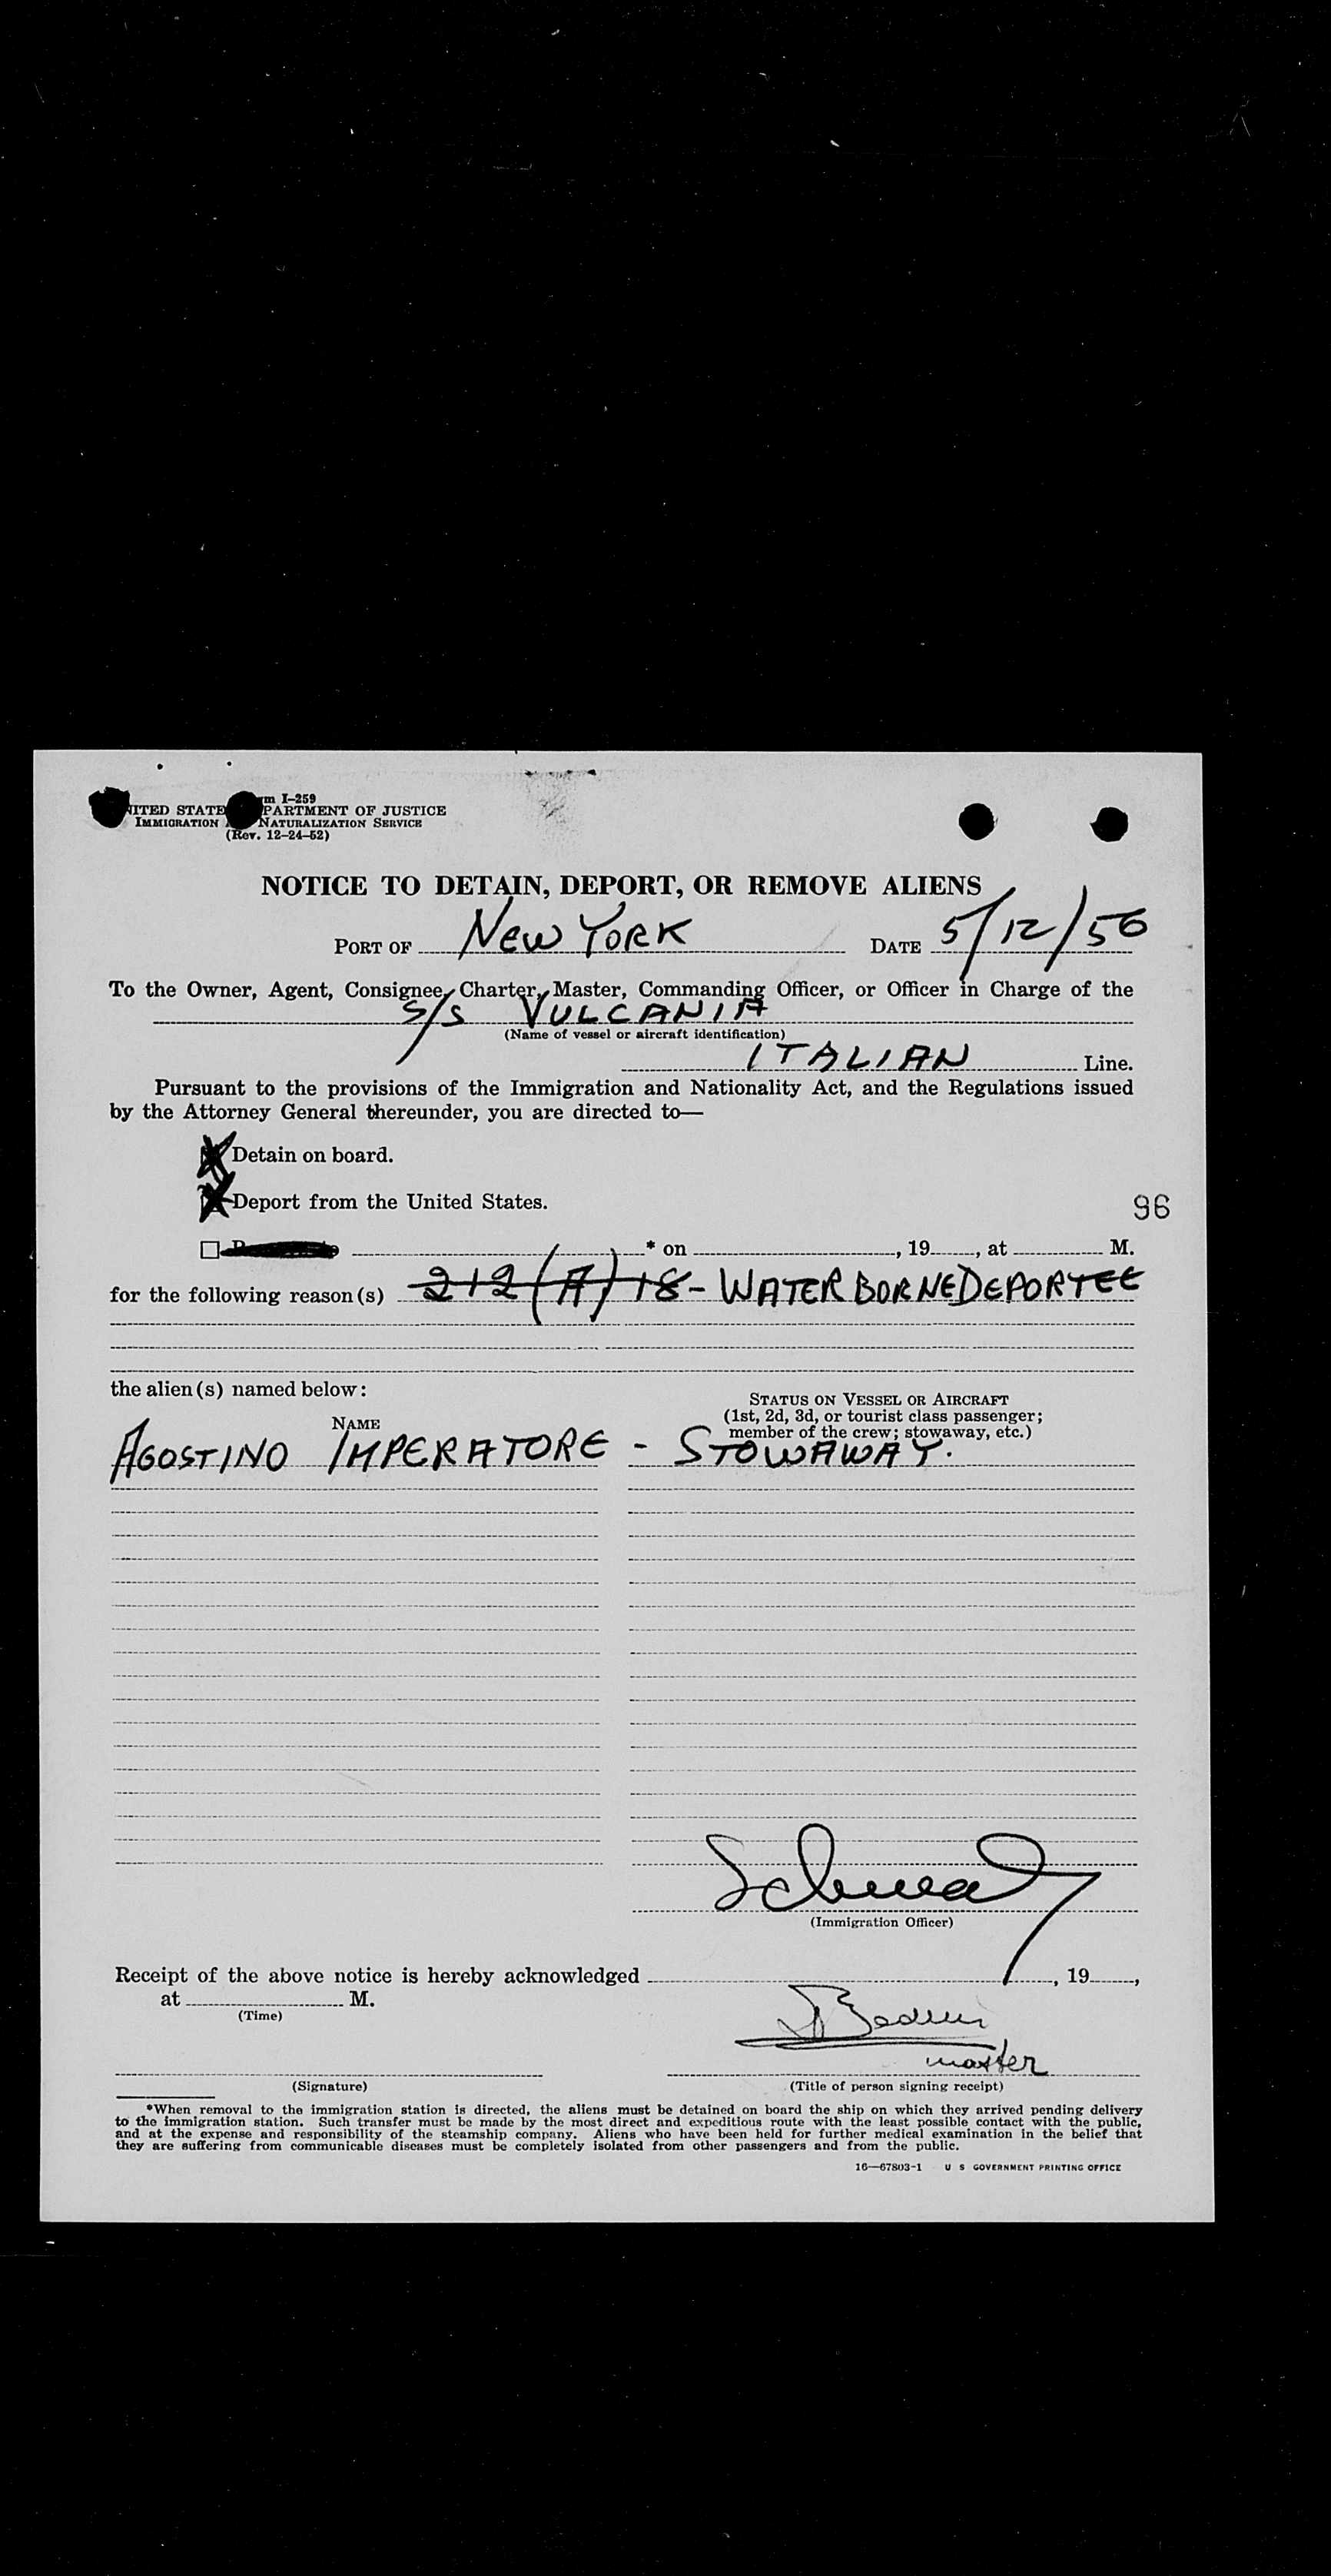 m I-259
ITED STATE PARTMENT OF JUSTICE
IMMIGRATION NATURALIZATION SERVICE
(Rev. 12-24-52)
NOTICE TO DETAIN, DEPORT, OR REMOVE ALIENS
PORT OF New YORK DATE 5/12/56
To the Owner, Agent, Consignee, Charter, Master, Commanding Officer, or Officer in Charge of the
S/S VULCANIA
(Name of vessel or aircraft identification)
ITALIAN Line.
Pursuant to the provisions of the Immigration and Nationality Act, and the Regulations issued
by the Attorney General thereunder, you are directed to—
Detain on board.
Deport from the United States.
96
* on , 19 , at M.
for the following reason(s) 212(A)18 - WATER BORNE DEPORTEE
the alien(s) named below:
STATUS ON VESSEL OR AIRCRAFT
(1st, 2d, 3d, or tourist class passenger;
member of the crew; stowaway, etc.)
NAME
AGOSTINO IMPERATORE - STOWAWAY.
(Immigration Officer)
Receipt of the above notice is hereby acknowledged , 19 ,
at M.
(Time)
master
(Signature) (Title of person signing receipt)
*When removal to the immigration station is directed, the aliens must be detained on board the ship on which they arrived pending delivery
to the immigration station. Such transfer must be made by the most direct and expeditious route with the least possible contact with the public,
and at the expense and responsibility of the steamship company. Aliens who have been held for further medical examination in the belief that
they are suffering from communicable diseases must be completely isolated from other passengers and from the public.
16—67803-1 U S GOVERNMENT PRINTING OFFICE